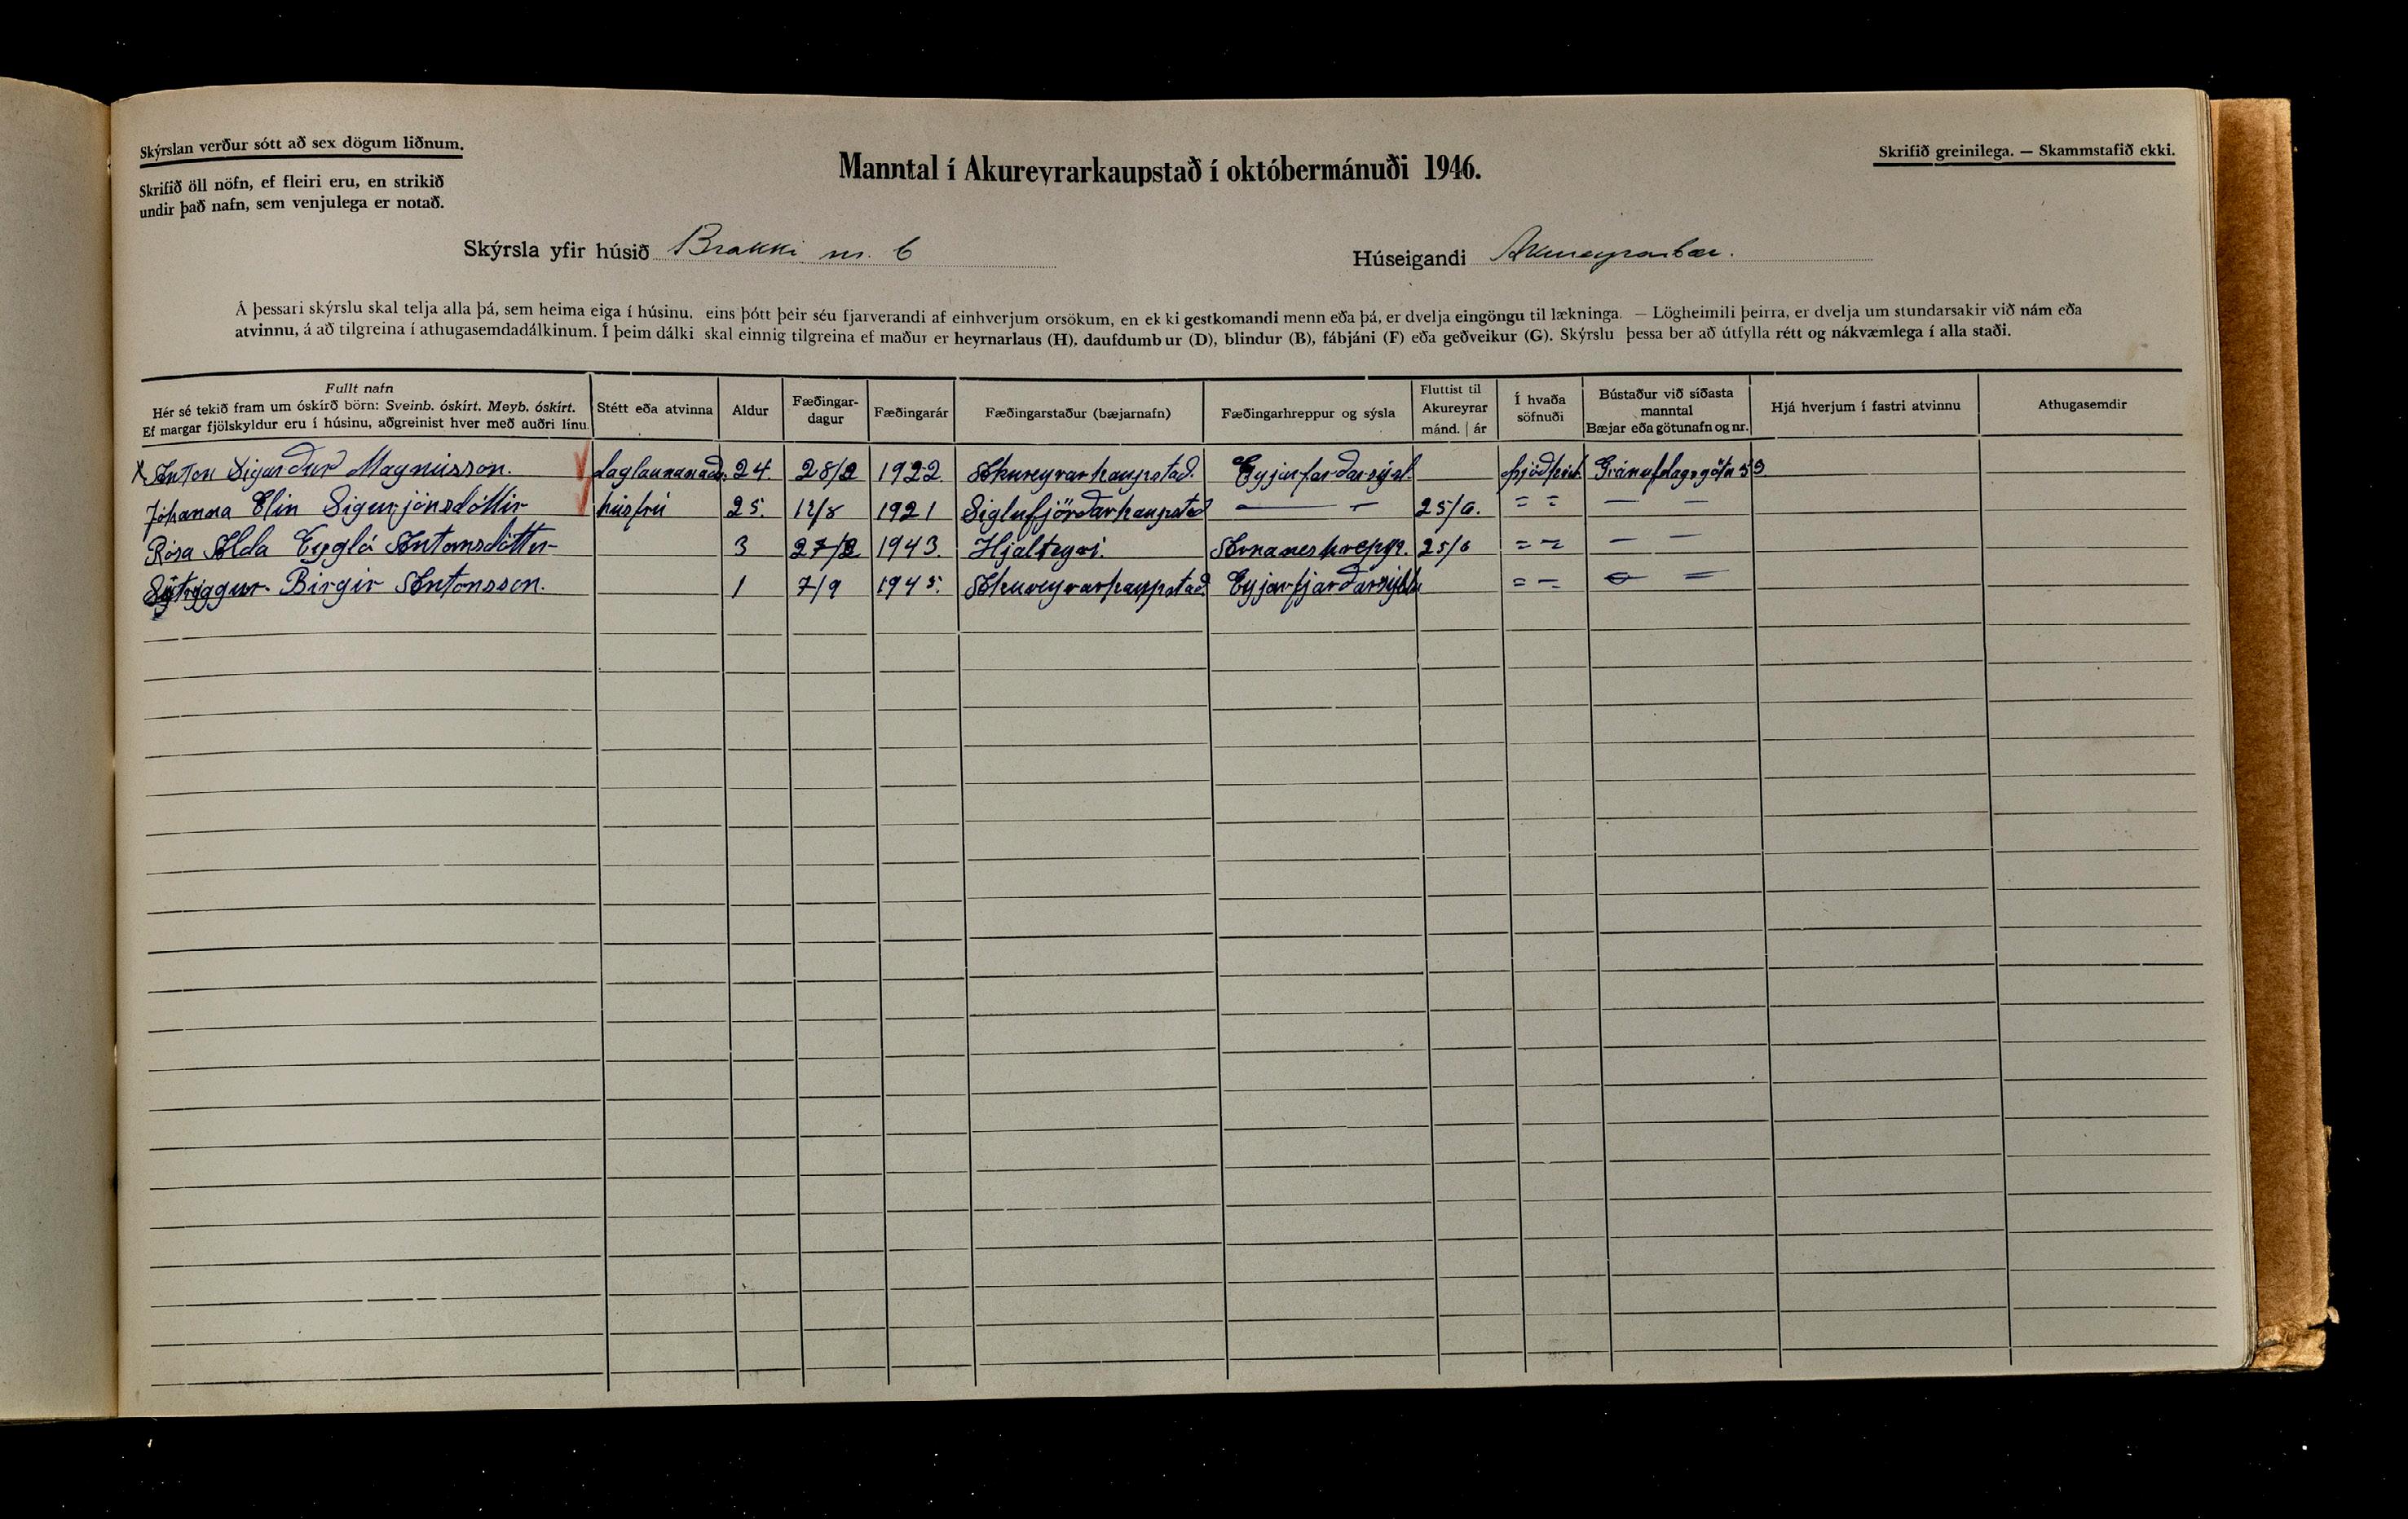 Skýrslan verður sótt að sex dögum liðnum.
Skrifið öll nöfn, ef fleiri eru, en strikið
undir það nafn, sem venjulega er notað.
Manntal í Akureyrarkaupstað í októbermánuði 1946.
Skrifið greinilega. — Skammstafið ekki.
Skýrsla yfir húsið Brakki nr. 6
Húseigandi Akureyrarbær.
Á þessari skýrslu skal telja alla þá, sem heima eiga í húsinu, eins þótt þeir séu fjarverandi af einhverjum orsökum, en ekki gestkomandi menn eða þá, er dvelja eingöngu til lækninga. — Lögheimili þeirra, er dvelja um stundarsakir við nám eða
atvinnu, á að tilgreina í athugasemdadálkinum. Í þeim dálki skal einnig tilgreina ef maður er heyrnarlaus (H), daufdumbur (D), blindur (B), fábjáni (F) eða geðveikur (G). Skýrslu þessa ber að útfylla rétt og nákvæmlega í alla staði.
Fullt nafn
Hér sé tekið fram um óskírð börn: Sveinb. óskírt. Meyb. óskírt.
Ef margar fjölskyldur eru í húsinu, aðgreinist hver með auðri línu.
Stétt eða atvinna
Aldur
Fæðingar-
dagur
Fæðingarár
Fæðingarstaður (bæjarnafn)
Fæðingarhreppur og sýsla
Fluttist til
Akureyrar
mánd. | ár
Í hvaða
söfnuði
Bústaður við síðasta
manntal
Bæjar eða götunafn og nr.
Hjá hverjum í fastri atvinnu
Athugasemdir
x Anton Sigurður Magnússon. 24. 28/2 1922. Akureyrarkaupstað. Gránufélagsgötu 53
Jóhanna Elín Sigurjónsdóttir húsfrú 25. 12/8 1921 Siglufjörðarkaupstað — — 25/6. = = — —
Rósa Alda Eygló Antonsdóttir 3 27/2 1943. Hjalteyri. Arnaneshrepp. 25/6 = = — —
Sigtryggur Birgir Antonsson. 1 7/9 1945. Akureyrarkaupstað. Eyjarfjarðarsýslu = = — =